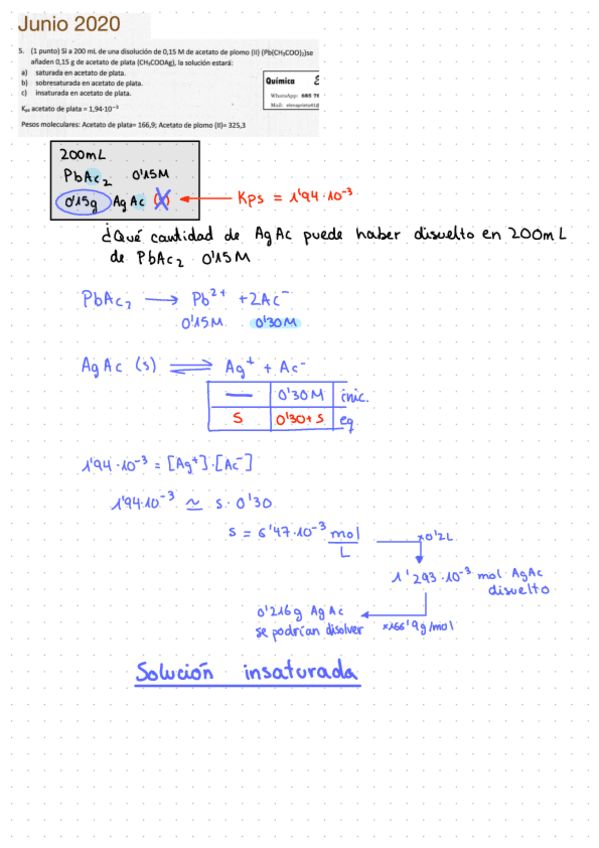 Junio 2020
5. (1 punto) Si a 200 mL de una disolución de 0,15 M de acetato de plomo (II) (Pb(CH₃COO)₂)se
añaden 0,15 g de acetato de plata (CH₃COOAg), la solución estará:
a) saturada en acetato de plata.
b) sobresaturada en acetato de plata.
c) insaturada en acetato de plata.
Kps acetato de plata = 1,94·10⁻³
Pesos moleculares: Acetato de plata= 166,9; Acetato de plomo (II)= 325,3
Química
WhatsApp: 685 76
Mail:
200mL
PbAc₂ 0'15M
0'15g AgAc
Kps = 1'94·10⁻³
¿Qué cantidad de AgAc puede haber disuelto en 200mL
de PbAc₂ 0'15M
PbAc₂ → Pb²⁺ + 2Ac⁻
0'15M 0'30M
AgAc (s) ⇌ Ag⁺ + Ac⁻
— 0'30M inic.
S 0'30+S eq
1'94·10⁻³ = [Ag⁺]·[Ac⁻]
1'94·10⁻³ ≃ s·0'30
s = 6'47·10⁻³ mol/L
x0'2L
1'293·10⁻³ mol AgAc
disuelto
0'216g AgAc
se podrían disolver
x166'9g/mol
Solución insaturada